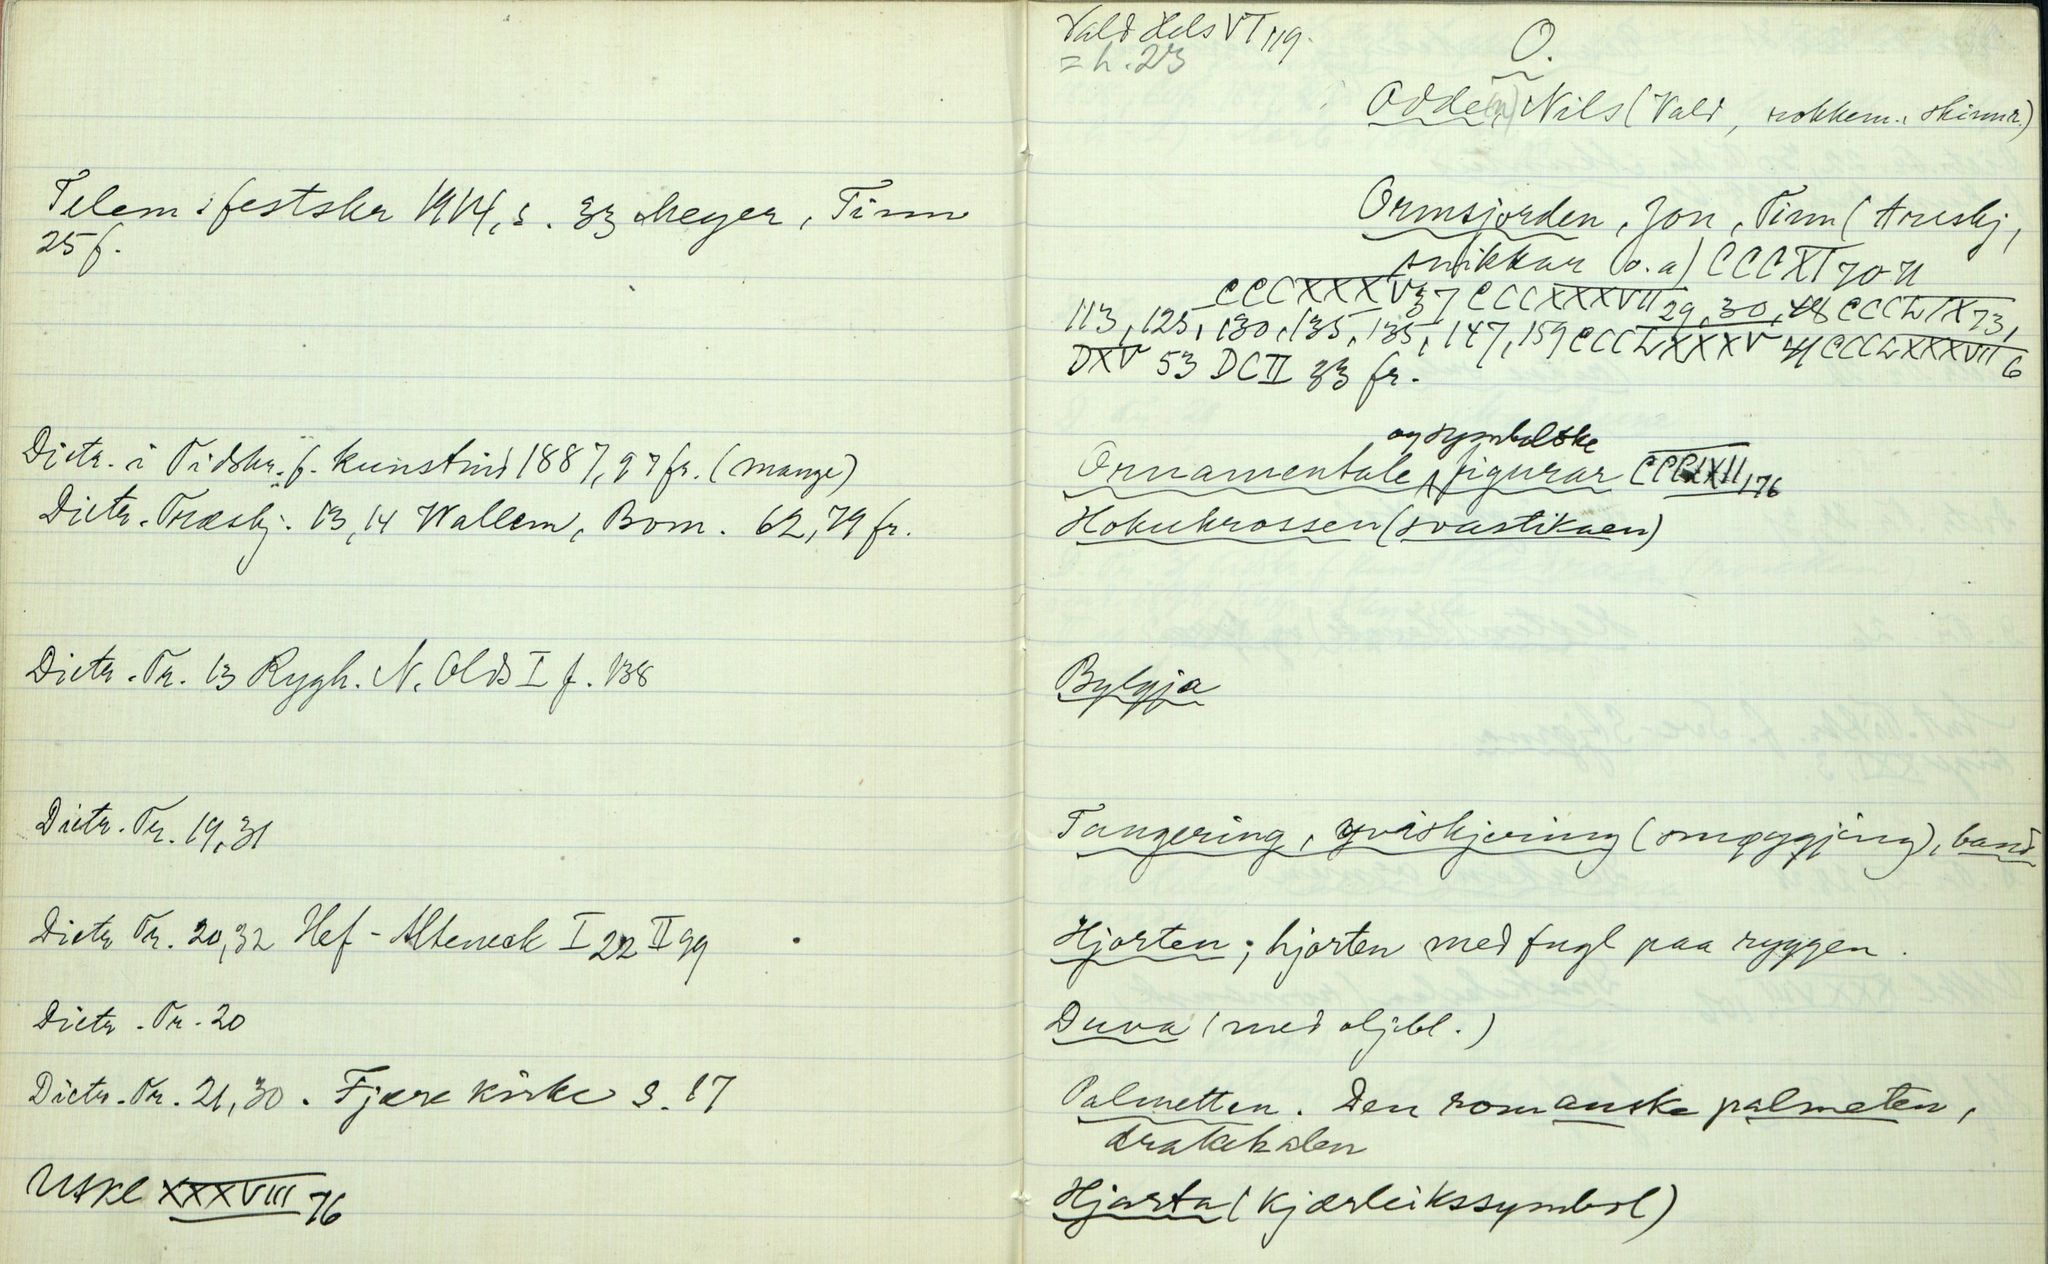 Telem i festskr 1914, s. 33 Meyer, Tinn
25 f.
Dietr. i Tidskr. f. kunstind 1887, 97 fr. (mange)
Dietr. Træskj. 13, 14 Wallem, Bom. 62, 79 fr.
Dietr. Tr. 13 Rygh. N. Olds I f. 138
Dietr. Tr. 19, 31
Dietr Tr. 20, 32 Hef-Alteneck I 22 II 99
Dietr. Tr. 20
Dietr. Tr. 21, 30. Fjære kirke s. 17
XXXVIII 76
Vald Hels VI 119.
= h. 23
O.
Odde(n), Nils (Vald, rokkem., skinnr.)
Ormsjorden, Jon, Tinn (Areskj,
snikkar o.a) CCCXI 70-71
CCCXXXV 37 CCCXXXVII 29, 30, 48 CCCLIX 73,
113, 125, 130, 135, 135, 147, 159 CCCLXXXV 41 CCCLXXXVII 6
DXV 53 DCII 33 fr.
og symbolske
Ornamentale figurar CCCLXII, 76
Hokukrossen (svastikaen)
Bylgja
Tangering, yviskjering (smøygjing), band
Hjorten; hjorten med fugl paa ryggen.
Duva (med oljebl.)
Palmetten. Den romanske palmeten,
drakehalen
Hjarta (kjærleikssymbol)